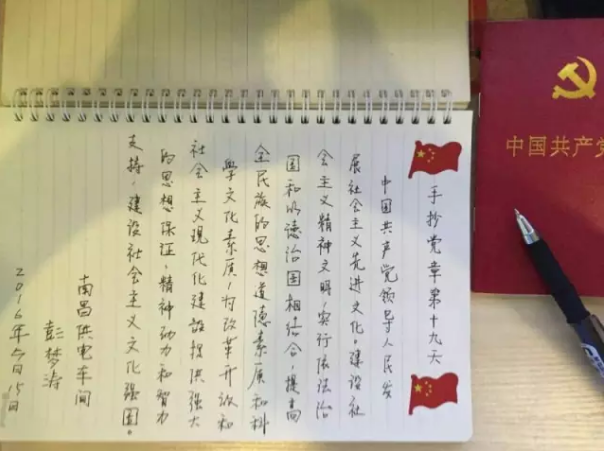 手抄党章第十九天
中国共产党领导人民发
展社会主义先进文化。建设社
会主义精神文明,实行依法治
国和以德治国相结合,提高
全民族的思想道德素质和科
学文化素质,为改革开放和
社会主义现代化建设提供强大
的思想保证,精神动力和智力
支持,建设社会主义文化强国。
南昌供电车间
彭梦涛
2016年5月15日
中国共产党